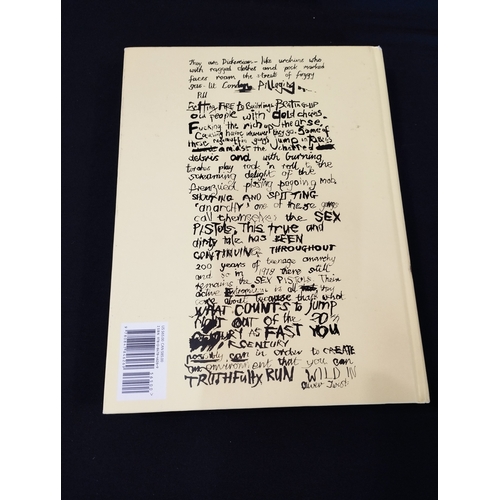 They are Dickensian-like urchins who
with ragged clothes and pock marked
faces roam the streets of foggy
gas-lit London Pillaging
Setting FIRE to Buildings BEATING UP
old people with gold chains.
Fucking the rich up the arse.
Causing havoc wherever they go. Some of
these ragamuffin gangs jump on tables
amidst the charred
debris and with burning
torches play rock 'n roll to the
screaming delight of the
frenzied pissing pogoing mob.
SHOUTING AND SPITTING
'anarchy' one of these gangs
call themselves the SEX
PISTOLS. This true and
dirty tale has BEEN
CONTINUING THROUGHOUT
200 years of teenage anarchy
and so in 1978 there still
remains the SEX PISTOLS. Their
active extremism is all they
care about because that's what
WHAT COUNTS TO JUMP
OUT OF THE 20th
CENTURY AS FAST YOU
CENTURY
possibly can in order to CREATE
an environment that you can
TRUTHFULLY RUN WILD IN
Oliver Twist